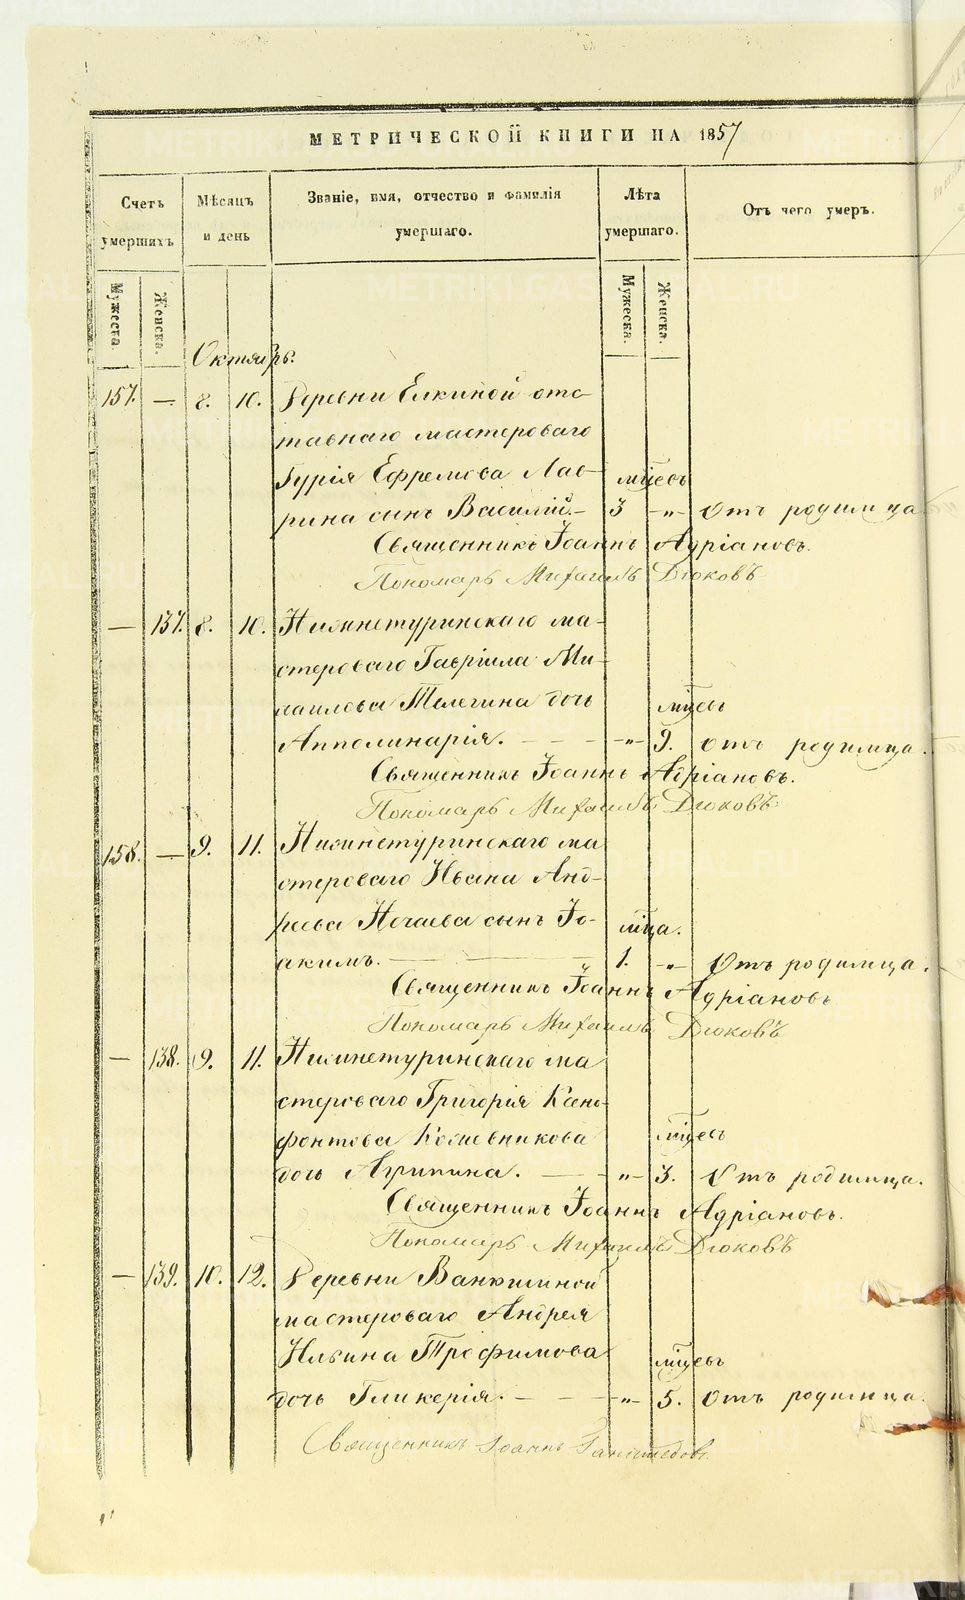 МЕТРИЧЕСКОЙ КНИГИ НА 1857
Счетъ умершихъ
Мѣсяцъ и день
Званіе, имя, отчество и фамилія умершаго.
Лѣта умершаго.
Отъ чего умеръ.
Мужеска.
Женска.
Мужеска.
Женска.
Октябрь.
157. — 8. 10. Деревни Елкиной отс-
тавнаго мастероваго
Гурія Ефремова Лав- мцевъ
рина сынъ Василій. — 3 -„- Отъ родимца.
Священникъ Іоаннъ Адріановъ.
Пономарь Михаилъ Дюковъ
— 137. 8. 10. Нижнетуринскаго ма-
стероваго Гавріила Ми-
хаилова Телегина дочь мцевъ
Апполинарія. — — -„- 9. отъ родимца.
Священникъ Іоаннъ Адріановъ.
Пономарь Михаилъ Дюковъ
158. — 9. 11. Нижнетуринскаго ма
стероваго Ивана Анд-
реева Нечаева сынъ Іо- мца.
акимъ. — — 1. -„- Отъ родимца.
Священникъ Іоаннъ Адріановъ
Пономарь Михаилъ Дюковъ
— 138. 9. 11. Нижнетуринскаго ма
стероваго Григорія Ксено-
фонтова Кожевникова мцевъ
дочь Агрипина. — — -„- 3. Отъ родимца.
Священникъ Іоаннъ Адріановъ.
Пономарь Михаилъ Дюковъ
— 139. 10. 12. Деревни Ванюшиной
мастероваго Андрея
Ильина Трофимова мцевъ
дочь Гликерія. — — -„- 5. отъ родимца.
Священникъ Іоаннъ